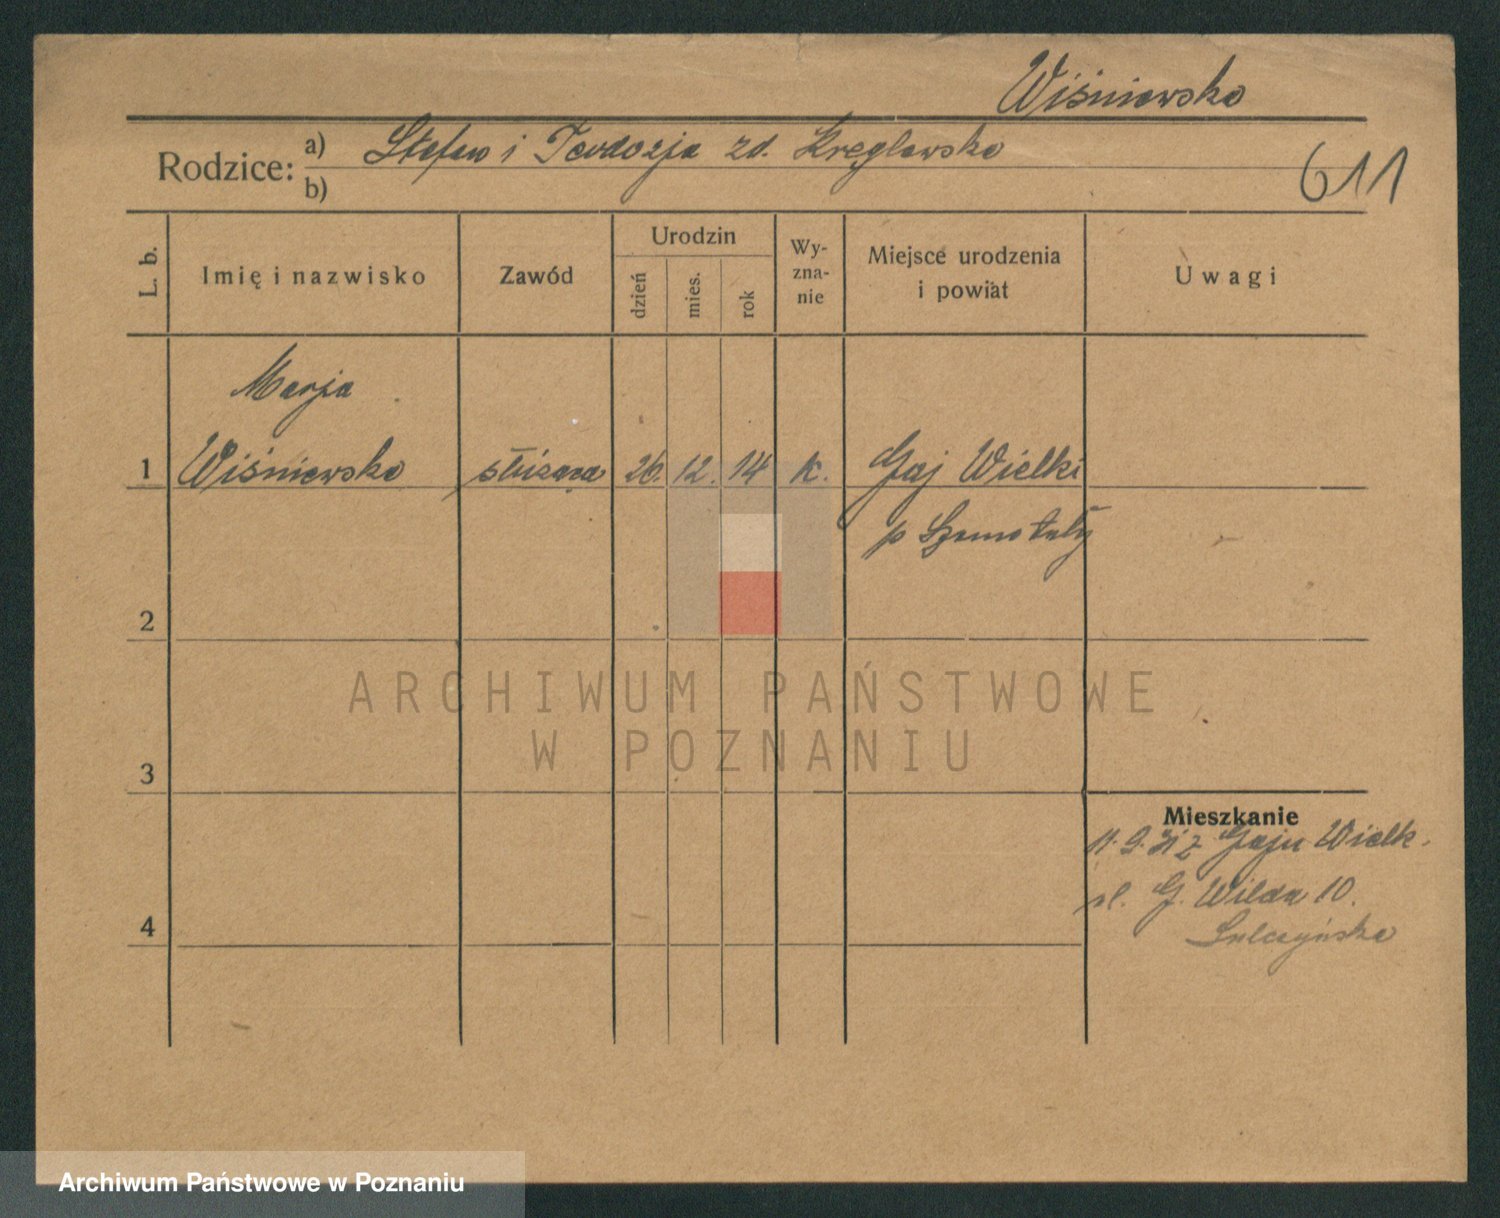 Wiśniewska
Rodzice: a) Stefan i Teodozja zd. Kręglewska
b)
611
L. b.
Imię i nazwisko
Zawód
Urodzin
dzień
mies.
rok
Wy-
zna-
nie
Miejsce urodzenia
i powiat
Uwagi
Marja
1 Wiśniewska służąca 26. 12. 14 k. Gaj Wielki
p Szamotuły
2
ARCHIWUM PAŃSTWOWE
W POZNANIU
3
Mieszkanie
z Gaju Wielk.
G. Wilda 10.
Sulczyńska
4
Archiwum Państwowe w Poznaniu